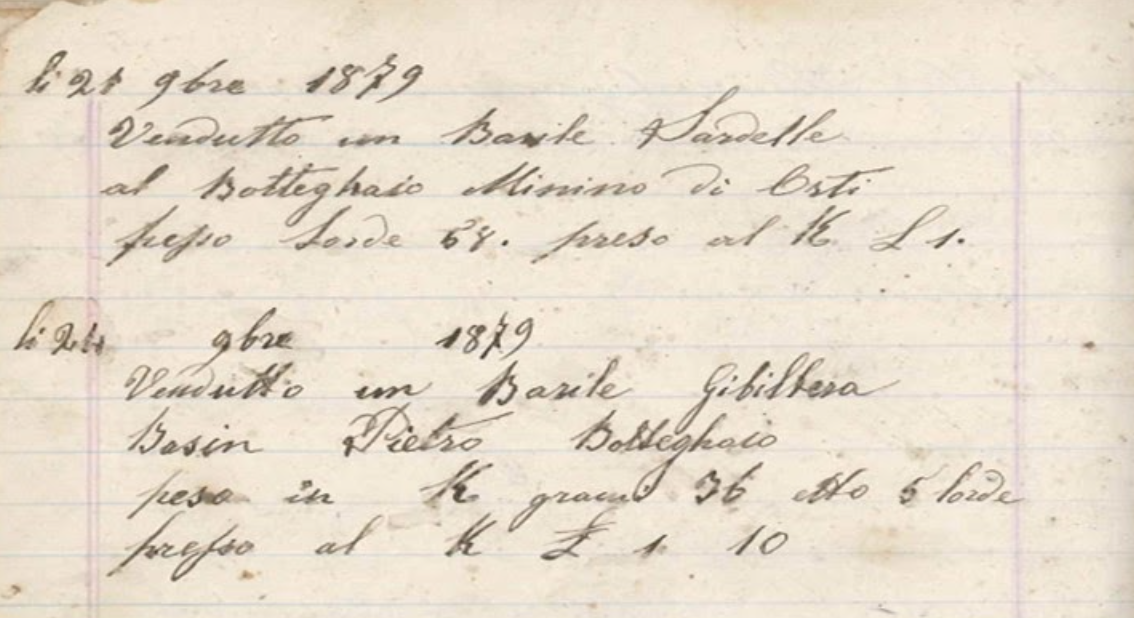 li 21 9bre 1879
Vendutto un Barile Sardelle
al Botteghaio Minino di Osti
pesso Lorde 68. preso al K £ 1.
li 24 9bre 1879
Vendutto un Barile Gibilterra
Basin Pietro Botteghaio
peso in K grami 36 etto 5 lorde
presso al K £ 1 10